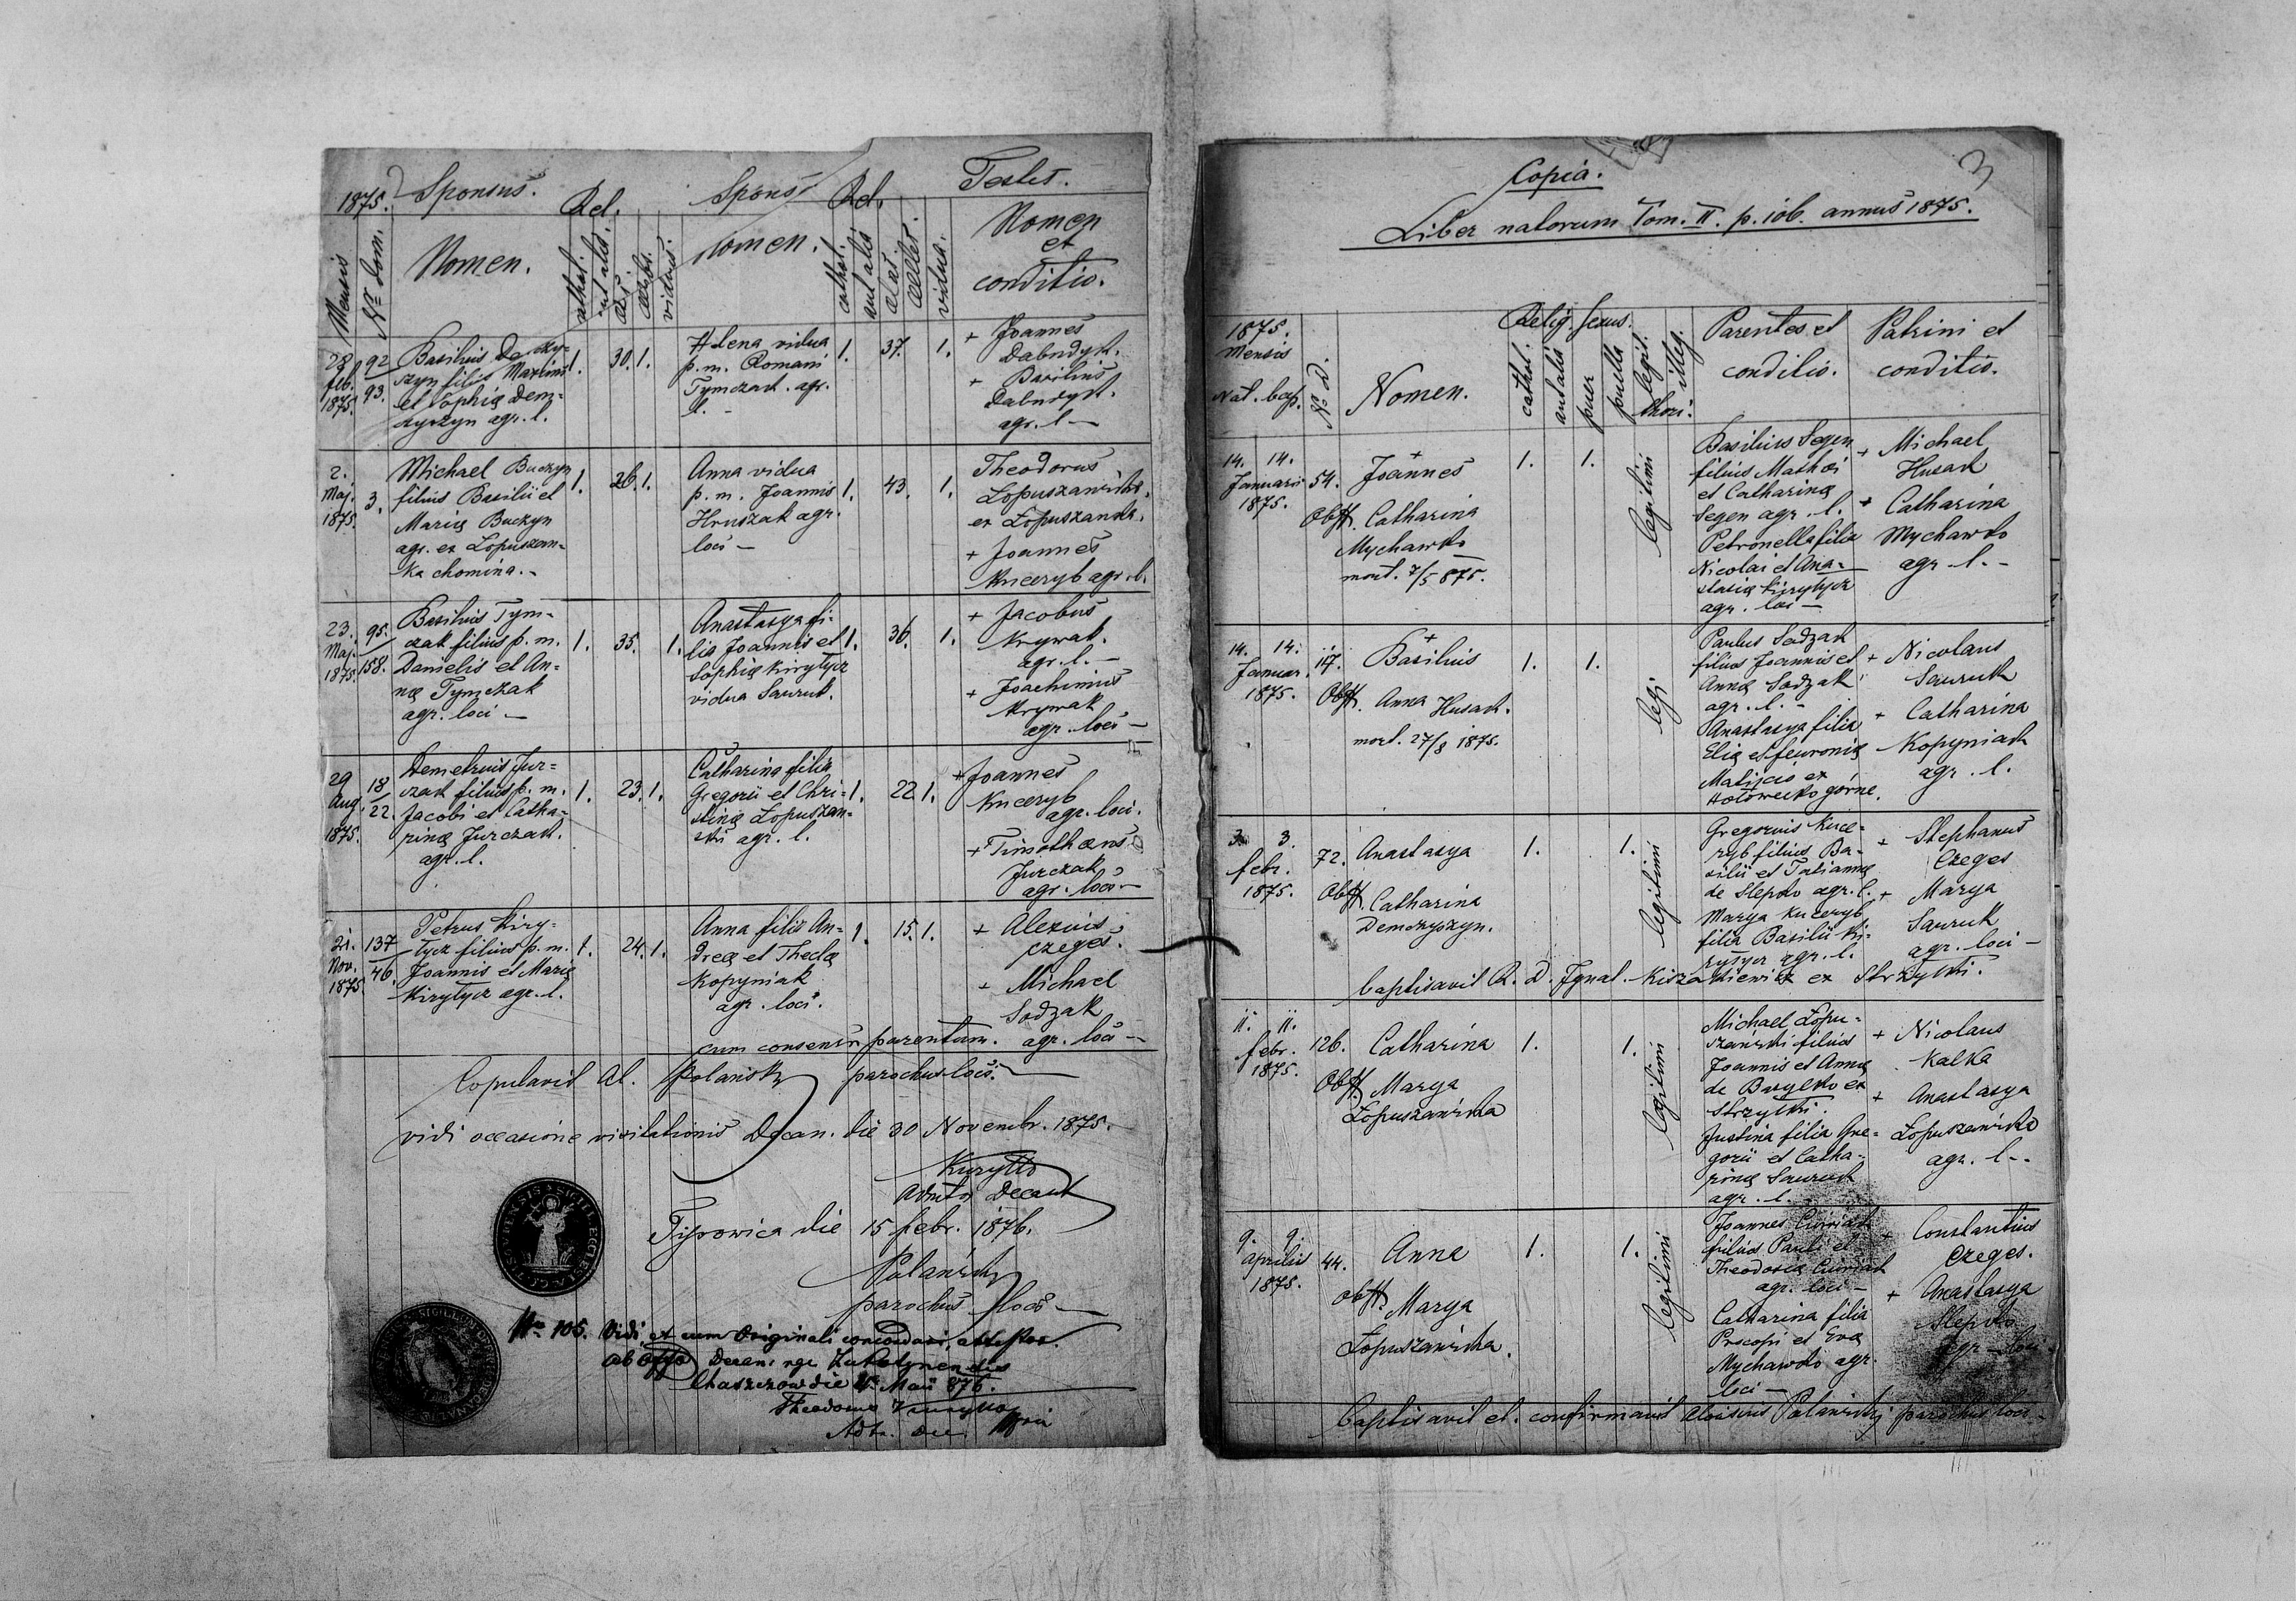 1875. Sponsus. Rel. Sponsa Rel. Testes.
Mensis
Nr. dom.
Nomen.
cathol.
aut alia.
aet.
caelebs.
viduus.
Nomen.
cathol.
aut alia
aetat.
caelebs.
vidua.
Nomen
et
conditio.
28 feb. 1875. 92/93.
Basilius Demczy-
szyn filius Maximi
et Sophiæ Dem-
czyszyn agr. l.
1. 30. 1.
Helena vidua
p. m. Romani
Tymczak. agr.
l. -
1. 37. 1.
+ Joannes
Dabndyk.
+ Basilius
Dabndyk.
agr. l. -
2. Maj. 1875. 3.
Michael Buczyn
filius Basilii et
Mariæ Buczyn
agr. ex Łopuszan-
ka chomina. -
1. 26. 1.
Anna vidua
p. m. Joannis
Hruszak agr.
loci -
1. 43. 1.
Theodorus
Łopuszański.
ex Łopuszanka.
+ Joannes
Kuceryb agr. l.
23. Maj. 1875. 95./158.
Basilius Tym-
czak filius p. m.
Danielis et An-
næ Tymczak
agr. loci -
1. 35. 1.
Anastasya fi-
lia Joannis et
Sophiæ Kirytycz
vidua Sauruk.
1. 36. 1.
+ Jacobus
Krywak.
agr. l. -
+ Joachimus
Krywak
agr. loci -
29 Aug. 1875. 18/22.
Demetrius Jur-
czak filius p. m.
Jacobi et Catha-
rinæ Jurczak.
agr. l.
1. 23. 1.
Catharina filia
Gregorii et Chri-
stinæ Łopuszań-
ski agr. l.
1. 22 1.
+ Joannes
Kuceryb
agr. loci.
+ Timothæus
Jurczak
agr. loci -
21. Nov. 1875 137/46.
Petrus Kiry-
tycz filius p. m.
Joannis et Mariæ
Kirytycz agr. l.
1. 24. 1.
Anna filia An-
dreæ et Theclæ
Kopyniak
agr. loci.
1. 15. 1.
+ Alexius
Czeges.
+ Michael
Sadzak
cum consensu parentum. agr. loci -
Copulavit Al. Polański parochus loci.
vidi occasione visitationis Decan. die 30 Novembr. 1875.
Kuryłło
Admtor Decant
Tysowica die 15 febr. 1876.
Polański
parochus loci -
Nr. 105. Vidi et cum Originali concordari, attestor.
Ab Offo Decan.
Chaszczow die Maii 876.
Theodorus Kuryłło
3
Copia.
Liber natorum Tom. II. p. 106. annus 1875.
1875.
Mensis
Nat. bap.
N. D.
Nomen.
Relig. Sexus.
cathol.
aut alia
puer
puella
legit.
thori illeg.
Parentes et
conditio.
Patrini et
conditio.
14. 14.
Januarii 54.
1875.
+
Joannes
Obst. Catharina
Mychawko
mort. 7/5 875.
1. 1. legitimi
Basilius Segen
filius Mathæi
et Catharinæ
Segen agr. l.
Petronella filia
Nicolai et Ana-
stasiæ Kirytycz
agr. loci -
+ Michael
Husak
+ Catharina
Mychawko
agr. l. -
14. 14.
Januar. 117.
1875.
+
Basilius
Obst. Anna Husak.
mort. 27/8 1875.
1. 1. legi
Paulus Sadzak
filius Joannis et
Annæ Sadzak
agr. l. -
Anastasya filia
Eliæ et feuroniæ
Matijcio ex
Hołowecko górne.
+ Nicolaus
Sauruk
+ Catharina
Kopyniak
agr. l.
3. 3.
febr. 72.
1875.
Anastasya
Obst. Catharina
Demczyszyn.
1. 1. legitimi
Gregorius Kuce-
ryb filius Ba-
silii et Tatiannæ
de Slepko agr. l.
Marya Kuceryb
filia Basilii Ki-
rytycz agr. l.
+ Stephanus
Czeges
+ Marya
Sauruk
agr. loci -
baptisavit R. D. Ignat. Kiszakiewicz ex Strzyłki.
11. 11.
febr. 126.
1875.
Catharina
Obst. Marya
Łopuszańska
1. 1. legitimi
Michael Łopu-
szański filius
Joannis et Annæ
de Basylko ex
Strzyłki.
Justina filia Gre-
gorii et Catha-
rinæ Sauruk
agr. l.
+ Nicolaus
Kałka
+ Anastasya
Łopuszańska
agr. l. -
9. 9.
aprilis 44.
1875.
Anna
obst. Marya
Łopuszańska.
1. 1. legitimi
Joannes
filius Pauli et
Theodosiæ
agr. loci -
Catharina filia
Procopi et Evæ
Mychawko agr.
loci -
+ Constantius
Czeges.
+ Anastasya
Slepko
agr. loci.
baptisavit et confirmavit Aloisius Polański parochus loci -